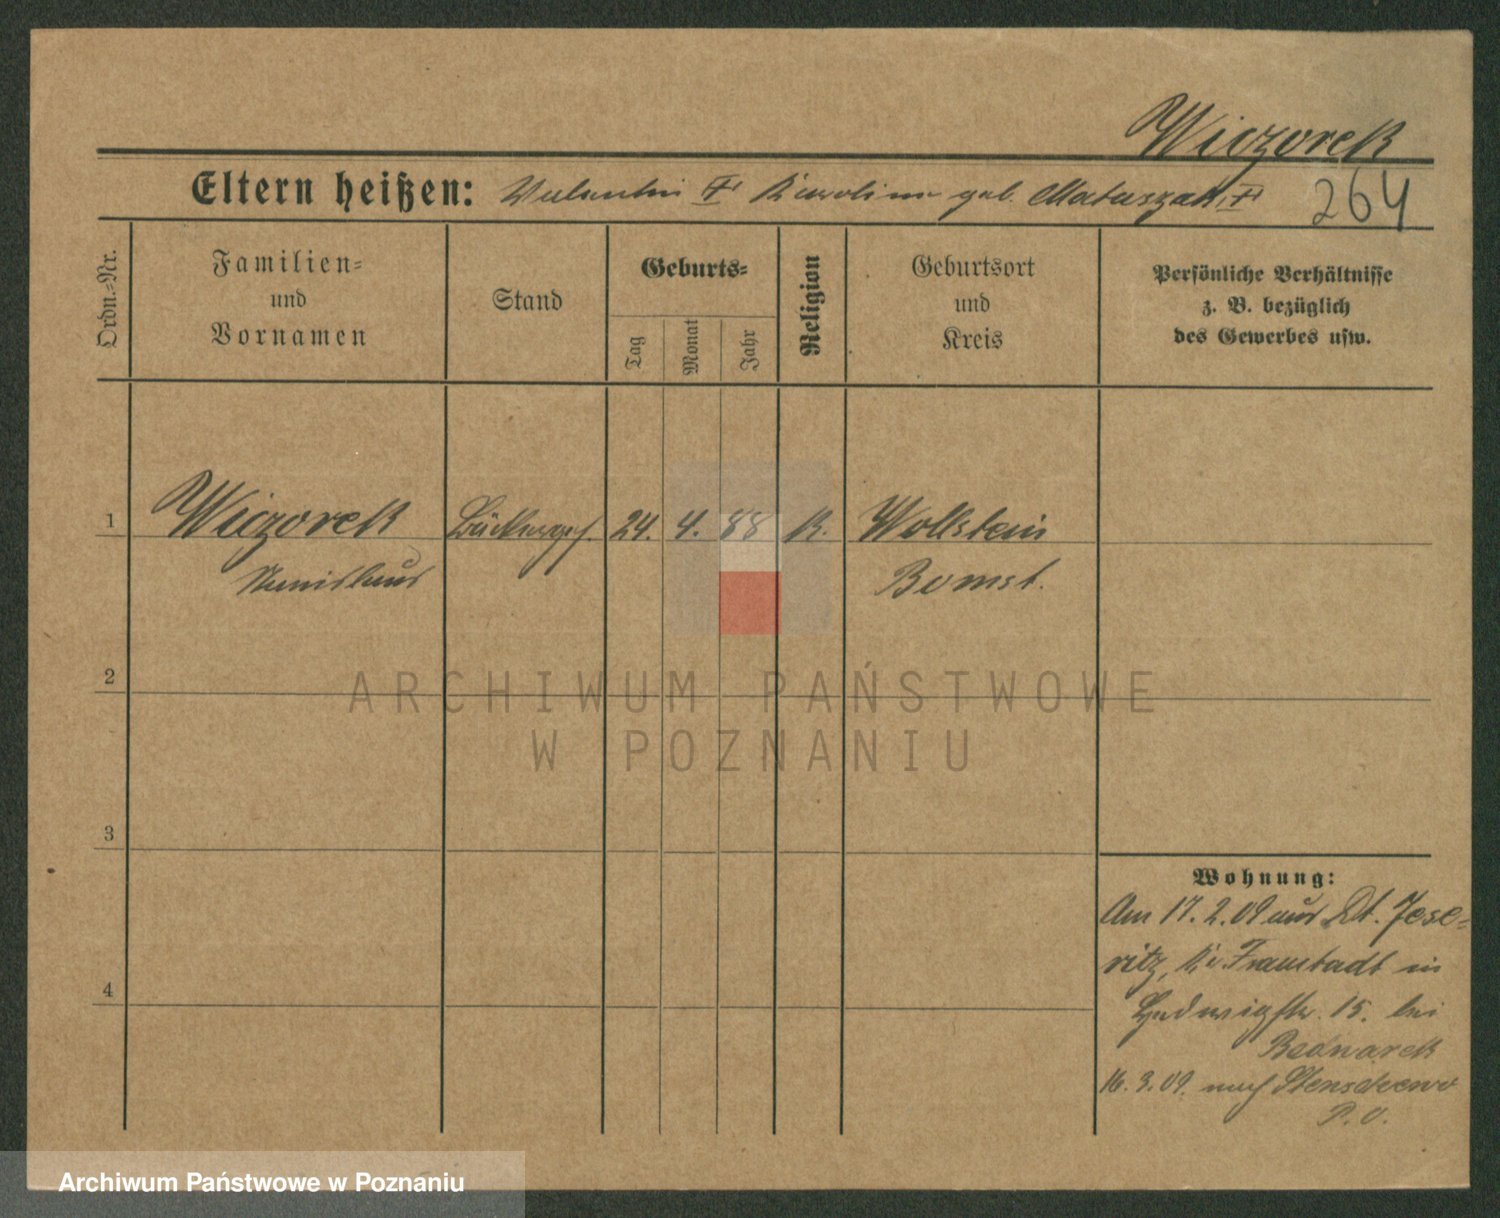 Wiczorek
Eltern heißen: Valentin Karolina geb. Matuszak
264
Ordn.-Nr.
Familien-
und
Vornamen
Stand
Geburts-
Tag
Monat
Jahr
Religion
Geburtsort
und
Kreis
Persönliche Verhältnisse
z. B. bezüglich
des Gewerbes usw.
1 Wiczorek Bäckerges. 24. 4. 88 K. Wollstein
Stanislaus Bomst.
2
3
4
Wohnung:
Am 17. 2. 09 aus Dt. Jese-
ritz, Kr. Fraustadt in
Ludwigstr. 15. bei
Bednarek
16. 3. 09. nach Stenschewo
P. O.
ARCHIWUM PAŃSTWOWE
W POZNANIU
Archiwum Państwowe w Poznaniu